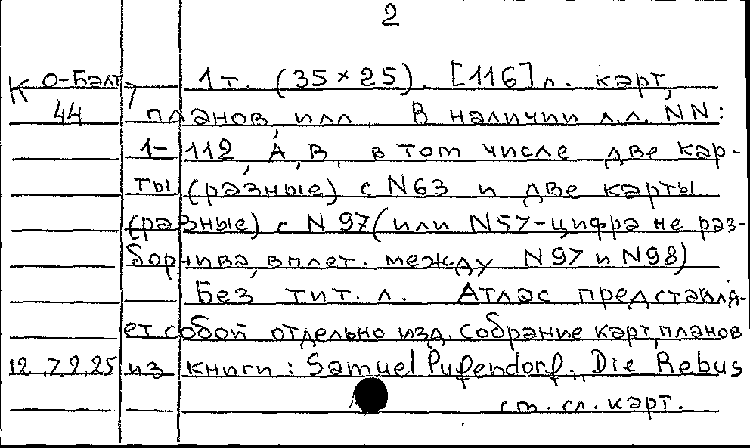 2
К О-Балт 1 т. (35×25). [116] л. карт,
44
7 планов, илл. В наличии л.л. NN:
1-112, А, В, в том числе две кар-
ты (разные) с N63 и две карты
(разные) с N 97 (или N57-цифра не раз-
борчива, вплет. между N97 и N98)
Без тит. л. Атлас представля-
ет собой отдельно изд. собрание карт, планов
12.79.25 из книги: Samuel Pufendorf., Die Rebus
см. сл. карт.